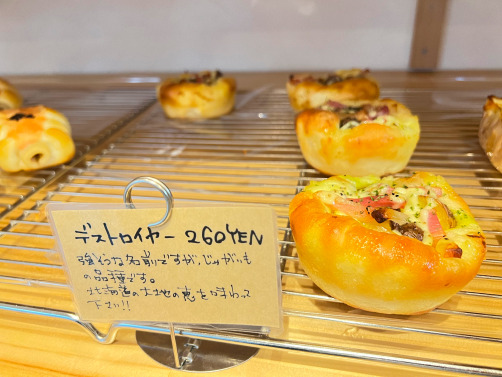 デストロイヤー 260YEN
強そうな名前ですが、じゃがいも
の品種です。
北海道の大地の恵を味わって
下さい!!